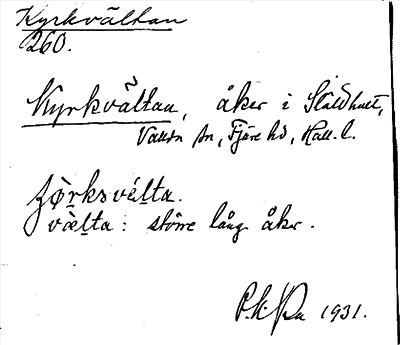 Kyrkvältan
260.
Kyrkvältan, åker i Slätthult,
Valda sn, Fjäre hd, Hall. l.
ʒørksvèlta.
vælta: större lång åker.
1931.